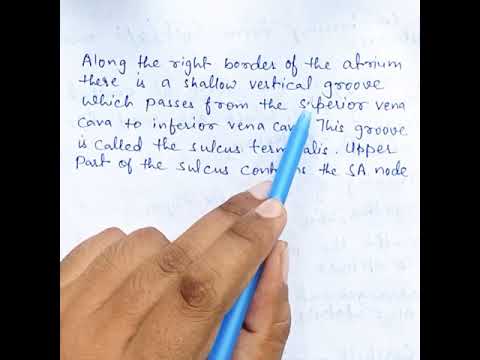 Along the right border of the atrium
there is a shallow vertical groove
which passes from the superior vena
cava to inferior vena cava This groove
is called the sulcus terminalis. Upper
part of the sulcus contains the SA node